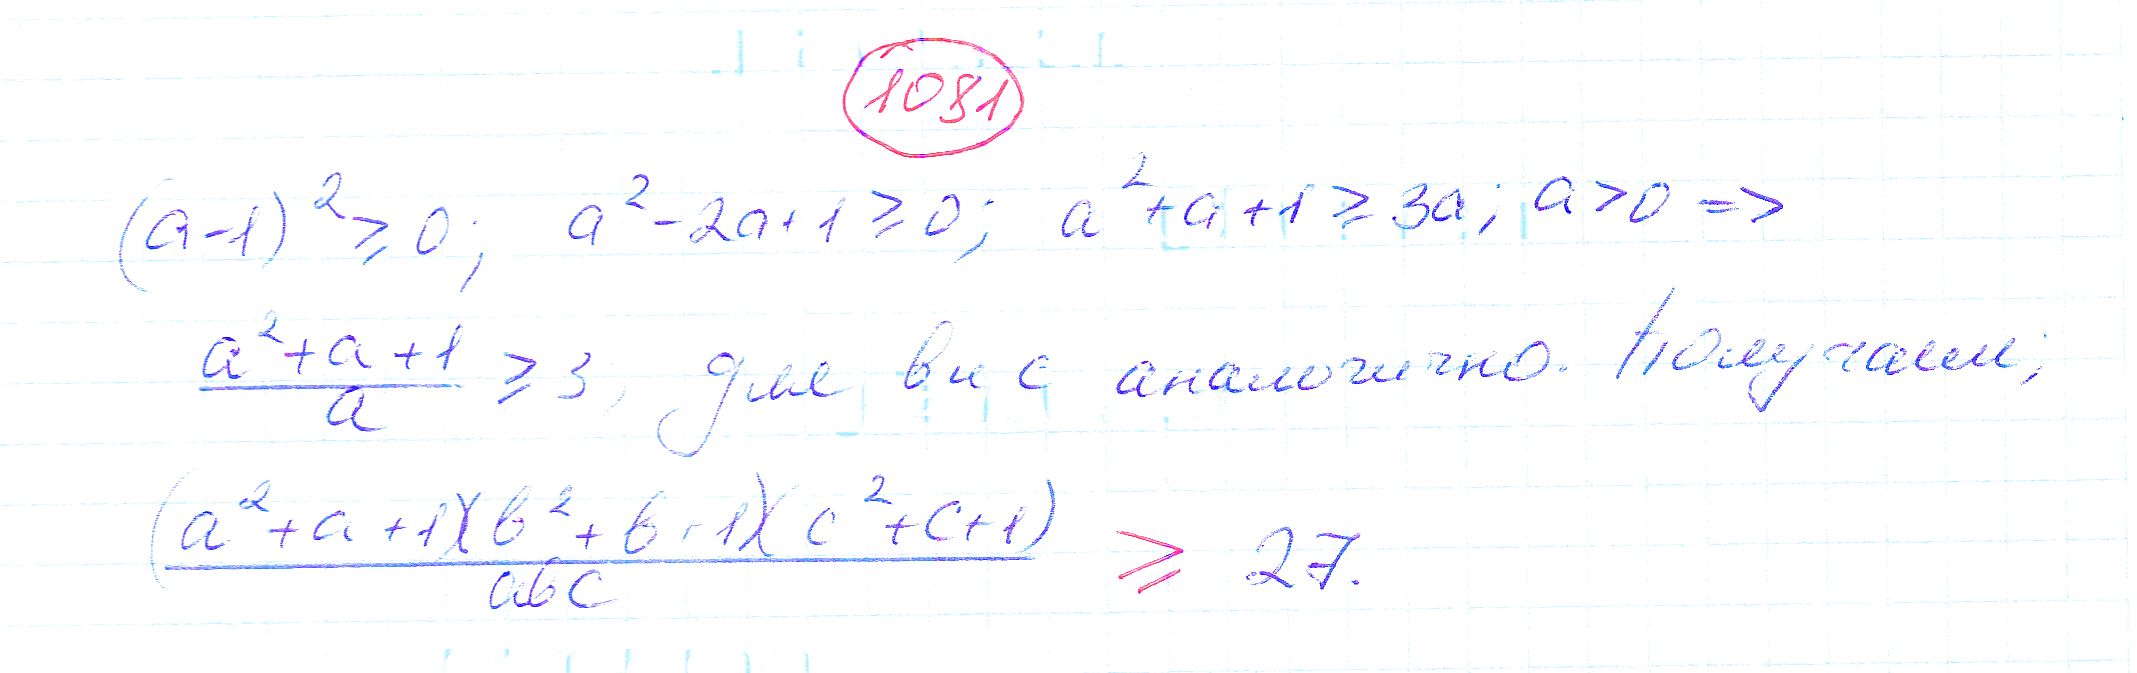 1081
(a-1)² ≥ 0; a² - 2a + 1 ≥ 0; a² + a + 1 ≥ 3a; a > 0 =>
(a² + a + 1)/a ≥ 3, для в и с аналогично. Получаем;
(a² + a + 1)(в² + в + 1)(с² + с + 1)/aвс ≥ 27.